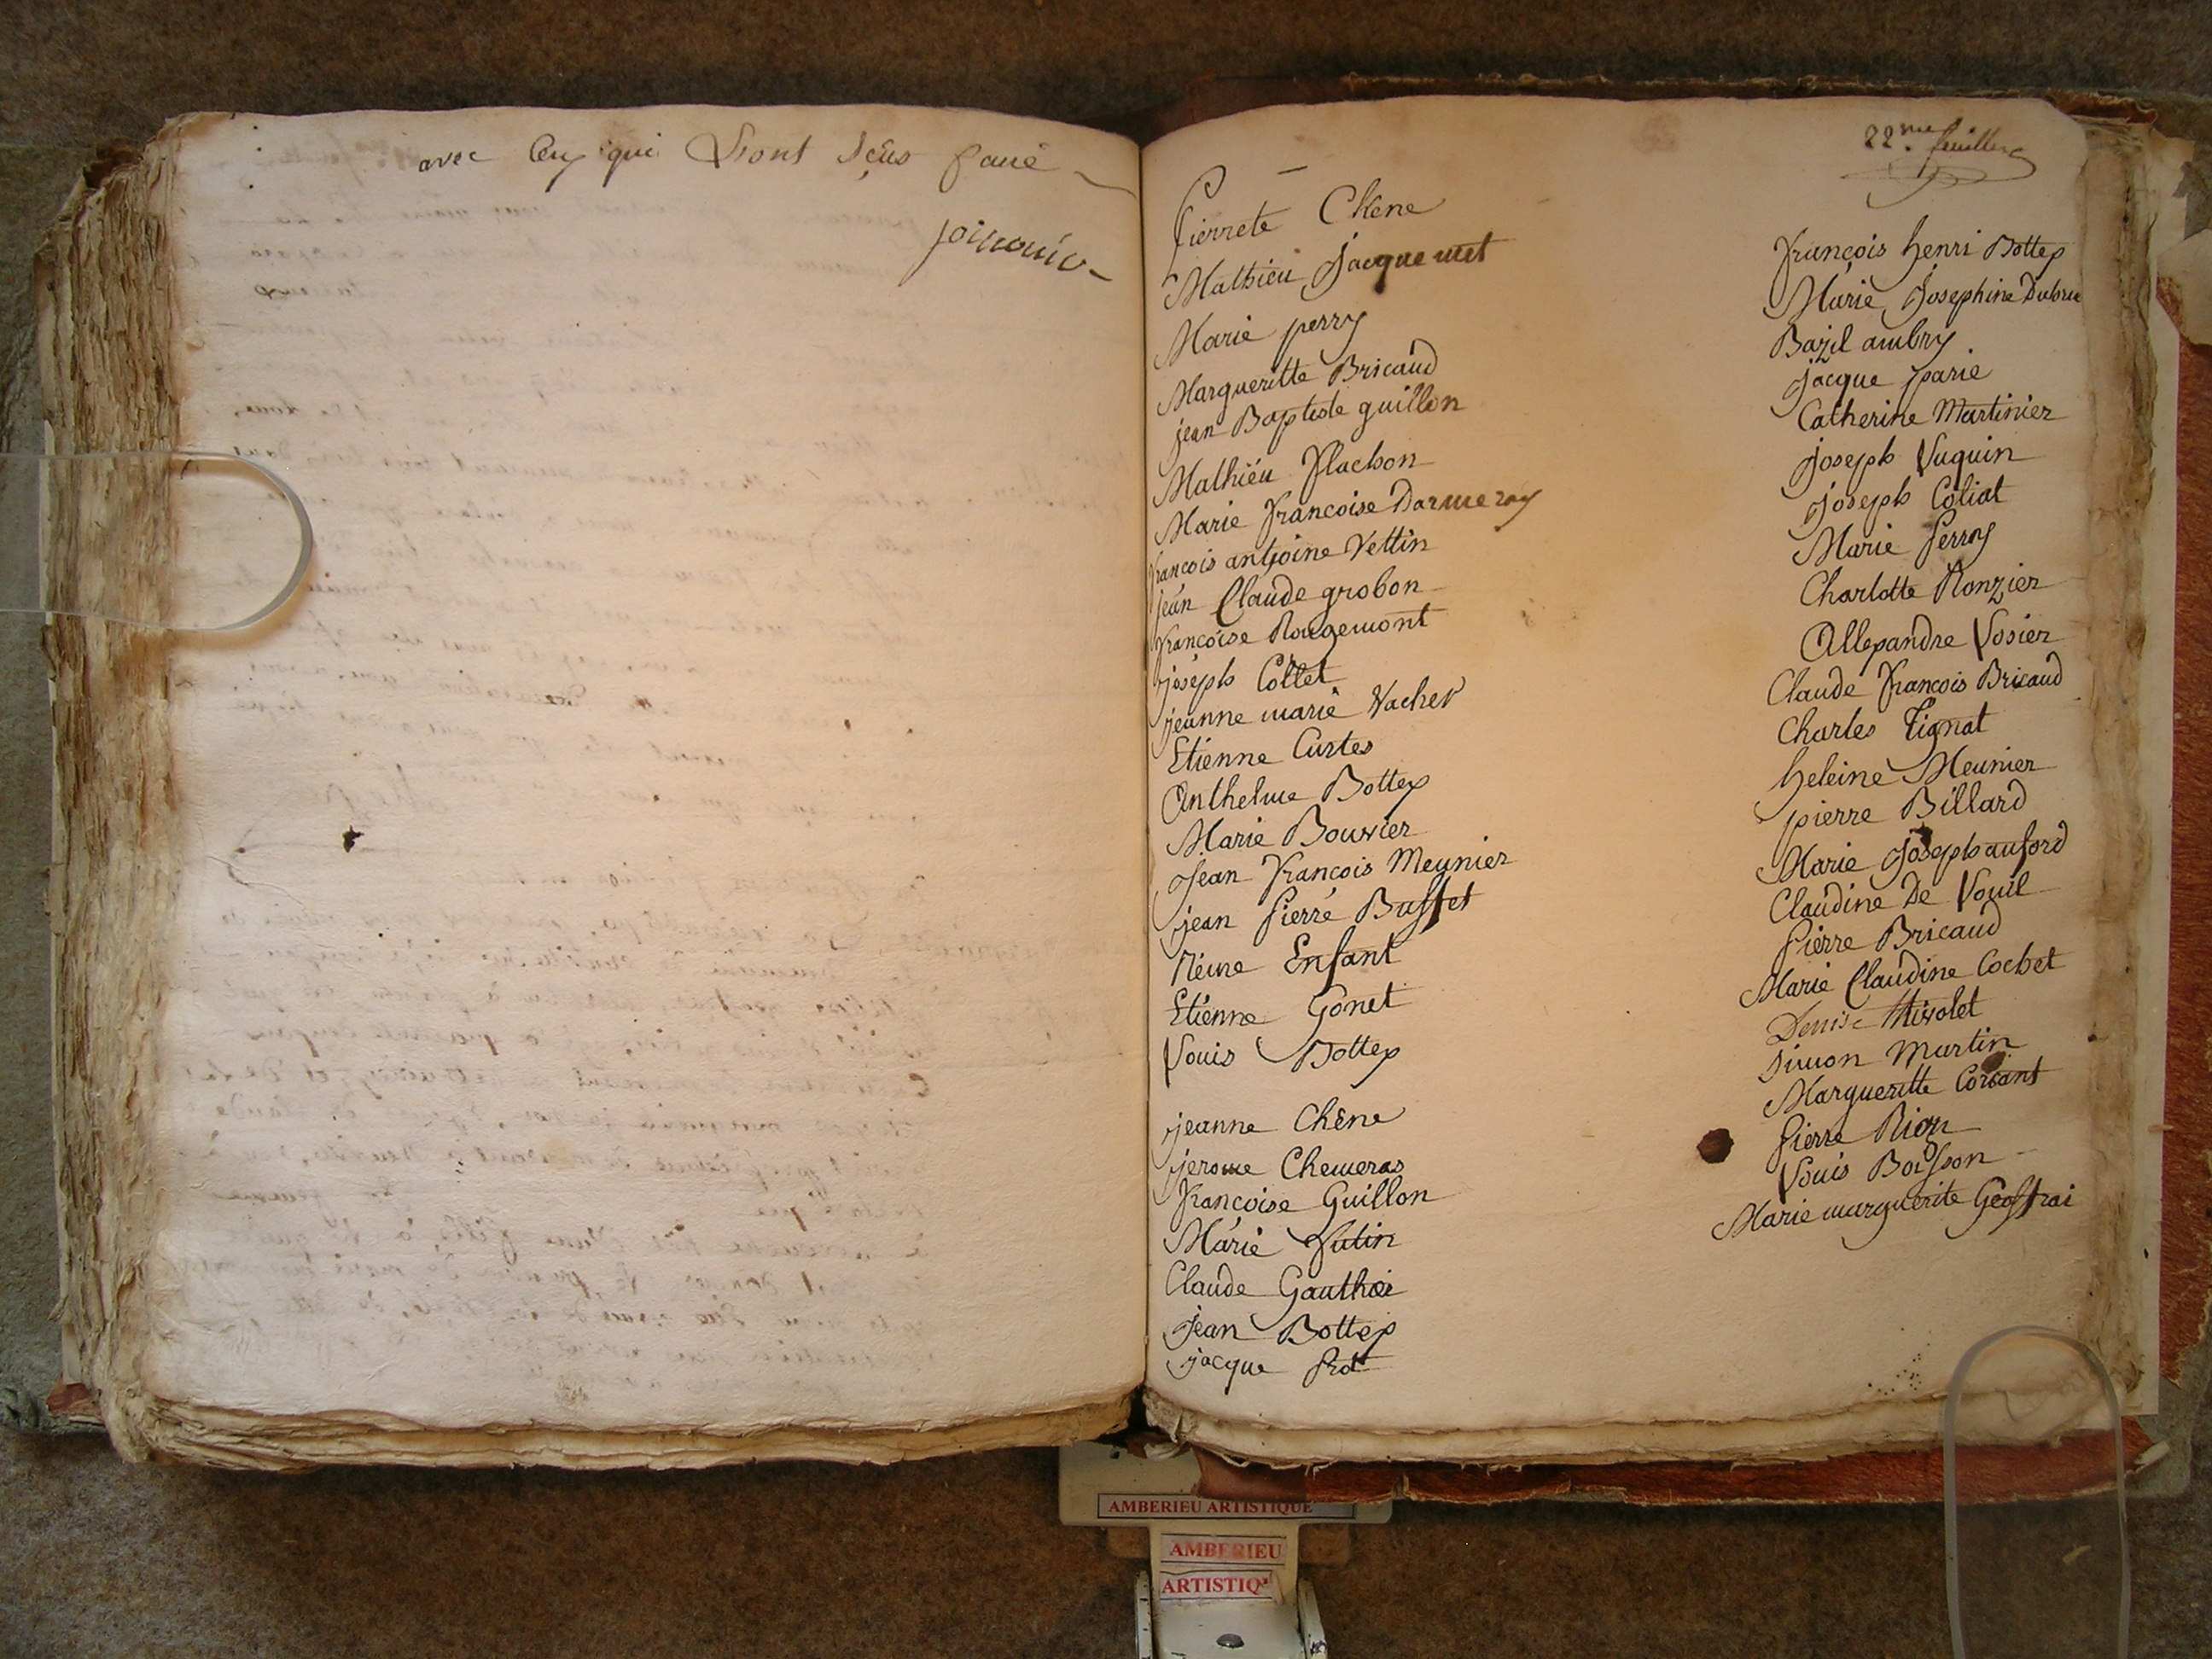 avec Ceux qui Sont
22me feuillet
Pierrete Chene
Mathieu Jacquemet
Marie perry
Margueritte Bricaud
jean Baptiste guillon
Mathieu Flachon
Marie Francoise Darmeray
Francois antoine Vettin
jean Claude grobon
Francoise Rougemont
joseph Collet
jeanne marie Vacher
Etienne Curtes
Anthelme Bottex
Marie Bouvier
Jean Francois Meunier
jean Pierre Buffet
Réine Enfant
Etienne Gonet
Louis Bottex
jeanne Chêne
jerome Chemeras
Francoise Guillon
Marie Jutin
Claude Gauthier
Jean Bottex
jacque Prot
François henri Bottex
Marie Josephine
Bazil ambry
jacque parie
Catherine Martinier
Joseph Vuquin
Joseph Coliat
Marie Perroy
Charlotte Ronzier
Allexandre Losier
Claude Francois Bricaud
Charles Tignat
heleine Meunier
pierre Billard
Marie Joseph
Claudine De
Pierre Bricaud
Marie Claudine Cochet
Denise thivolet
Simon Martin
Margueritte
Pierre
Louis Boisson
Marie marguerite Geoffrai
AMBERIEU ARTISTIQUE
AMBERIEU
ARTISTIQ